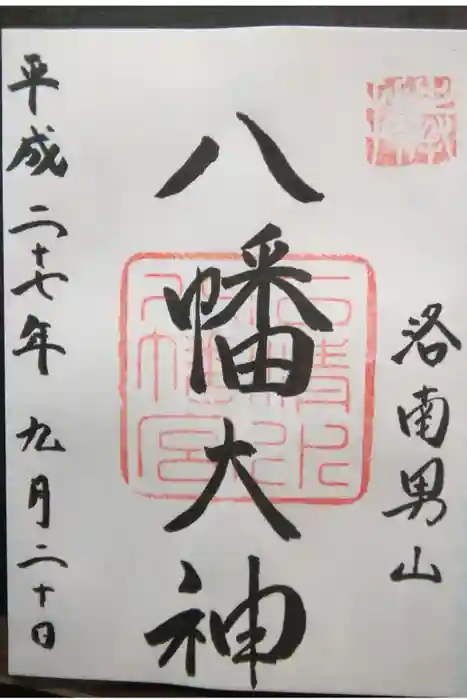 洛南男山
八幡大神
石清水八幡宮
平成二十七年九月二十日